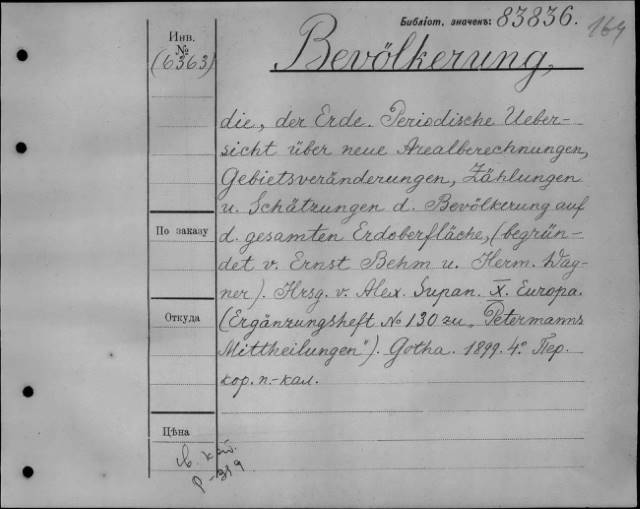 Библіот. значенъ: 83836.
164
Инв.
№
(6363)
Bevölkerung,
die, der Erde. Periodische Ueber-
sicht über neue Arealberechnungen,
Gebietsveränderungen, Zählungen
u. Schätzungen d. Bevölkerung auf
d. gesamten Erdoberfläche, (begrün-
det v. Ernst Behm u. Herm. Wag-
ner). Hrsg. v. Alex. Supan. X. Europa.
(Ergänzungsheft № 130 zu „Petermanns
Mittheilungen"). Gotha. 1899. 4°. Пер.
кор. п.-кал.
По заказу
Откуда
Цѣна